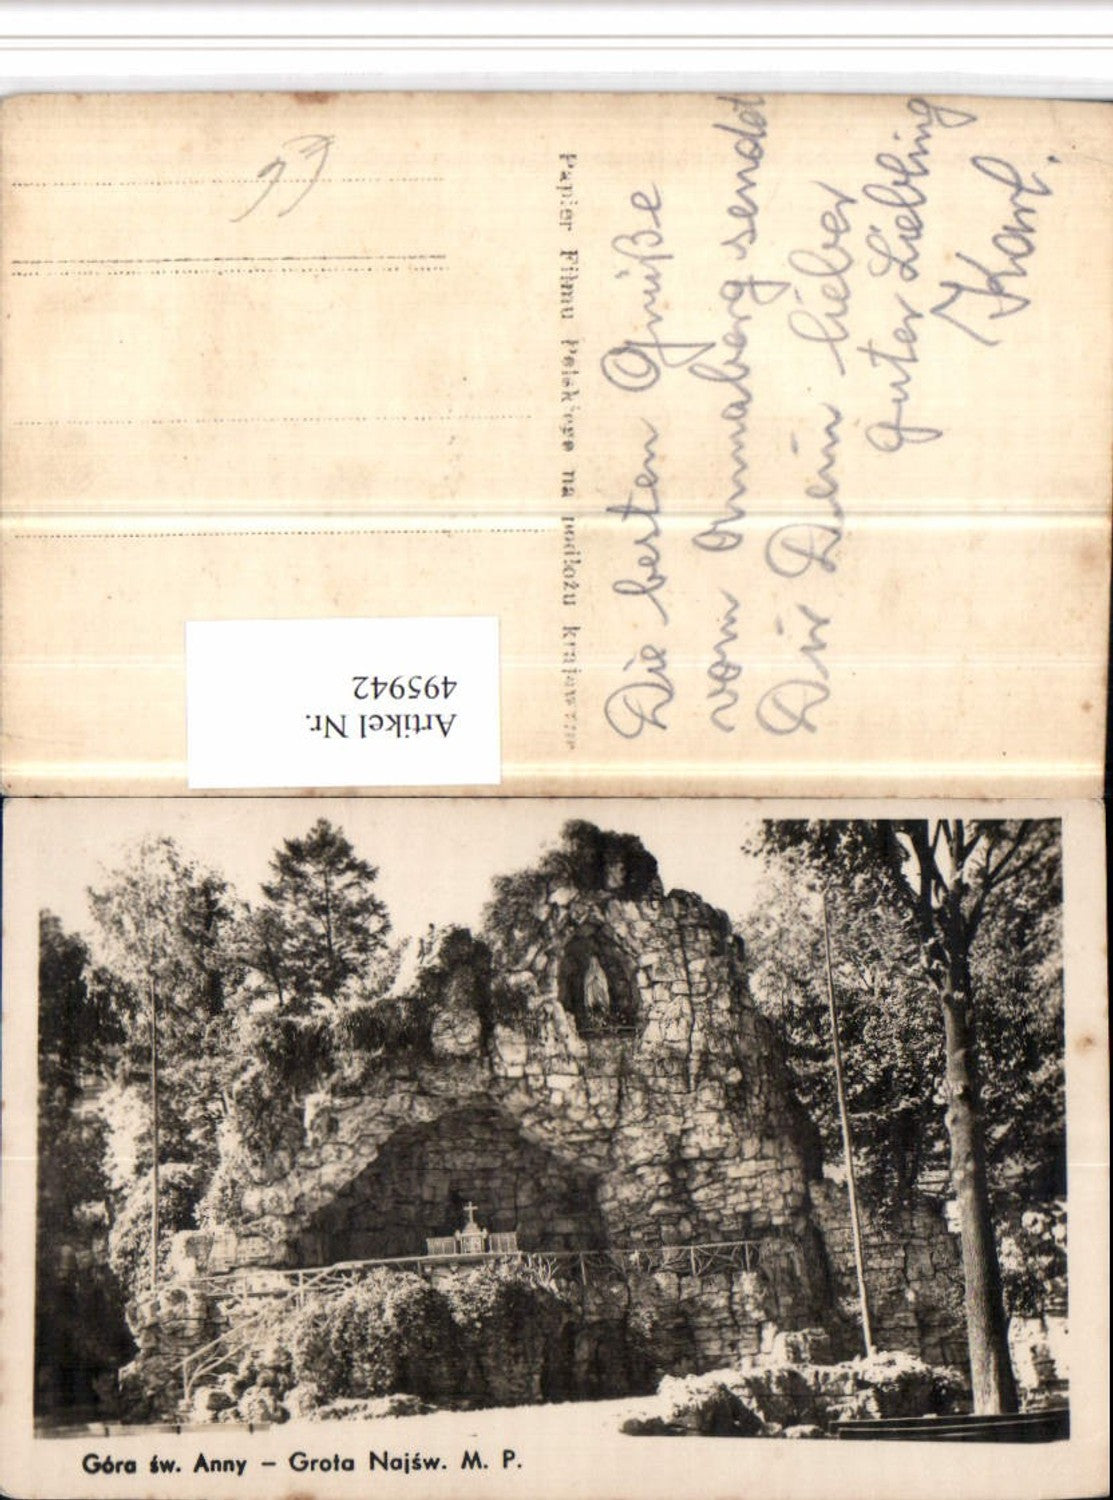 Die besten Grüße
vom Annaberg sendet
Dir Dein lieber
guter Liebling
Karl.
Papier Filmu Polskiego na podłożu krajowym
Artikel Nr.
495942
Góra św. Anny – Grota Najśw. M. P.